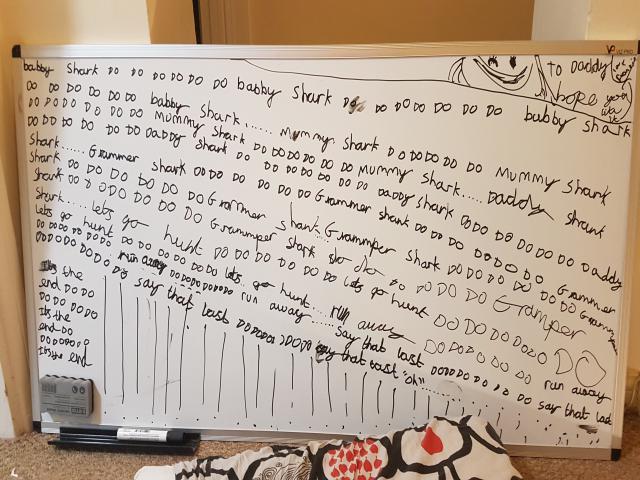 babby Shark DO DO DO DO DO DO babby Shark DO DO DO DO DO DO DO babby shark
DO DO DO DO DO DO babby Shark...... Mummy Shark DO DO DO DO DO Mummy Shark
DO DO DO DO DO DO Mummy Shark DO DO DO DO DO DO Mummy Shark.... Daddy shark
DO DO DO DO DO DO Daddy shark DO DO DO DO DO DO Daddy Shark DO DO DO DO DO DO Daddy
Shark...... Grammer Shark DO DO DO DO DO DO Grammer shark DO DO DO DO DO DO Grammer
Shark DO DO DO DO DO DO Grammer shark.... Grammper Shark DO DO DO DO DO DO Gramper
Shark DO DO DO DO DO DO Grammper Shark DO DO DO DO DO DO Gramper
Shark..... lets go hunt DO DO DO DO DO DO lets go hunt DO DO DO DO DO DO
lets go hunt DO DO DO DO DO DO lets go hunt.... run away DO DO DO DO DO DO run away
DO DO DO DO DO DO run away DO DO DO DO DO DO run away...... say that last DO DO DO DO DO DO say that last
DO DO DO DO DO DO say that last DO DO DO DO DO DO say that last "oh"......
Its the
end DO DO
DO DO DO DO
Its the
end DO
DO DO DO DO DO
Its the end
To Daddy
hope you
like it